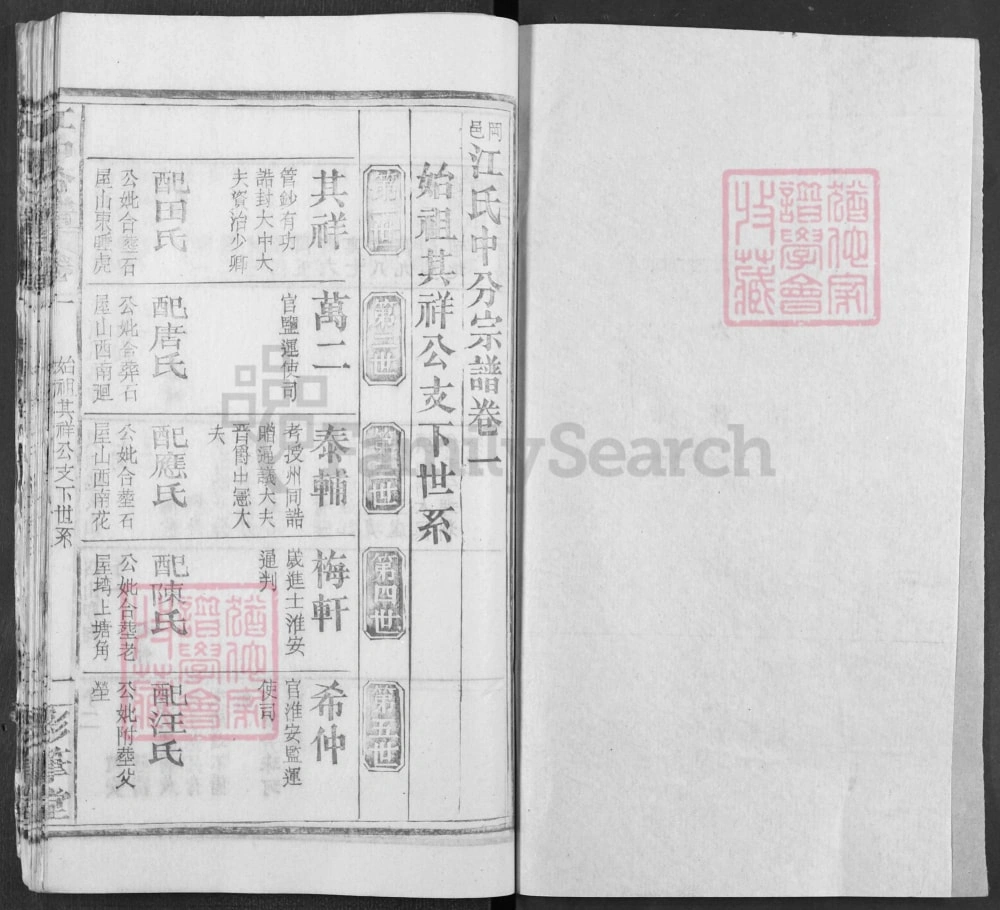 岡邑江氏中分宗譜卷一
始祖其祥公支下世系
第一世
其祥
管鈔有功
誥封大中大
夫資治少卿
配田氏
公妣合塟石
屋山東臥虎
第二世
萬二
官鹽運使司
配唐氏
公妣合葬石
屋山西南迴
第三世
泰輔
考授州同誥
贈通議大夫
晉爵中憲大
夫
配應氏
公妣合塟石
屋山西南花
第四世
梅軒
歲進士淮安
通判
配陳氏
公妣合塟老
屋塆上塘角
第五世
希仲
官淮安監運
使司
配汪氏
公妣附塟父
塋
始祖其祥公支下世系
一
彩筆堂
猶他家
譜學會
收藏
猶他家
譜學會
收藏
FamilySearch